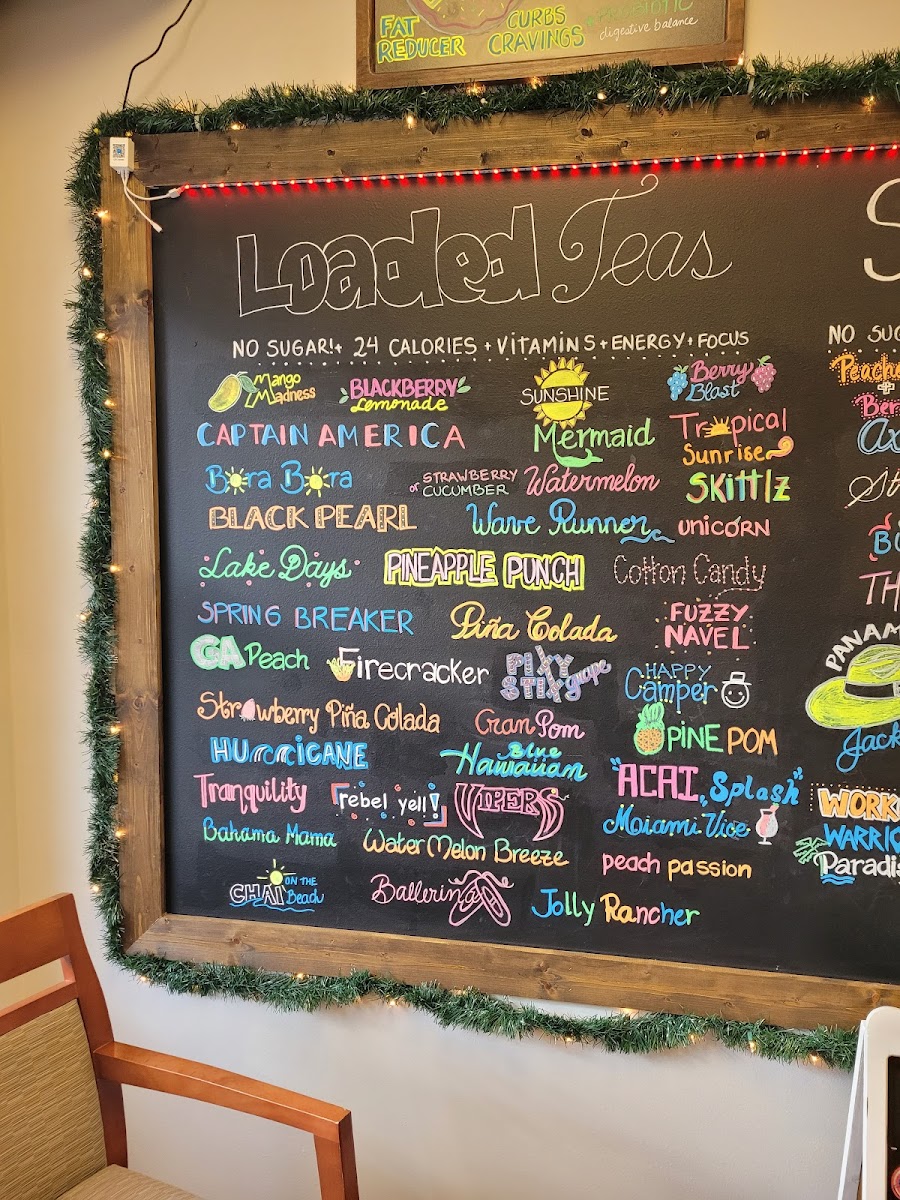 FAT
REDUCER
CURBS
CRAVINGS
digestive balance
Loaded Teas
NO SUGAR!+ 24 CALORIES + VITAMINS + ENERGY + FOCUS
Mango
Madness
BLACKBERRY
Lemonade
SUNSHINE
Berry
Blast
CAPTAIN AMERICA
Mermaid
Tropical
Sunrise
Bora Bora
STRAWBERRY
CUCUMBER
Watermelon
SKittlz
BLACK PEARL
Wave Runner
UNICORN
Lake Days
PINEAPPLE PUNCH
Cotton Candy
SPRING BREAKER
Piña Colada
FUZZY
NAVEL
GA Peach
Firecracker
PIXY
STIX grape
HAPPY
Camper
Strawberry Piña Colada
Cran Pom
PINE POM
HURRICANE
Blue
Hawaiian
"ACAI Splash"
Tranquility
rebel yell!
VIPERS
Miami Vice
Bahama Mama
WaterMelon Breeze
peach passion
CHAI ON THE
Beach
Ballerina
Jolly Rancher
NO